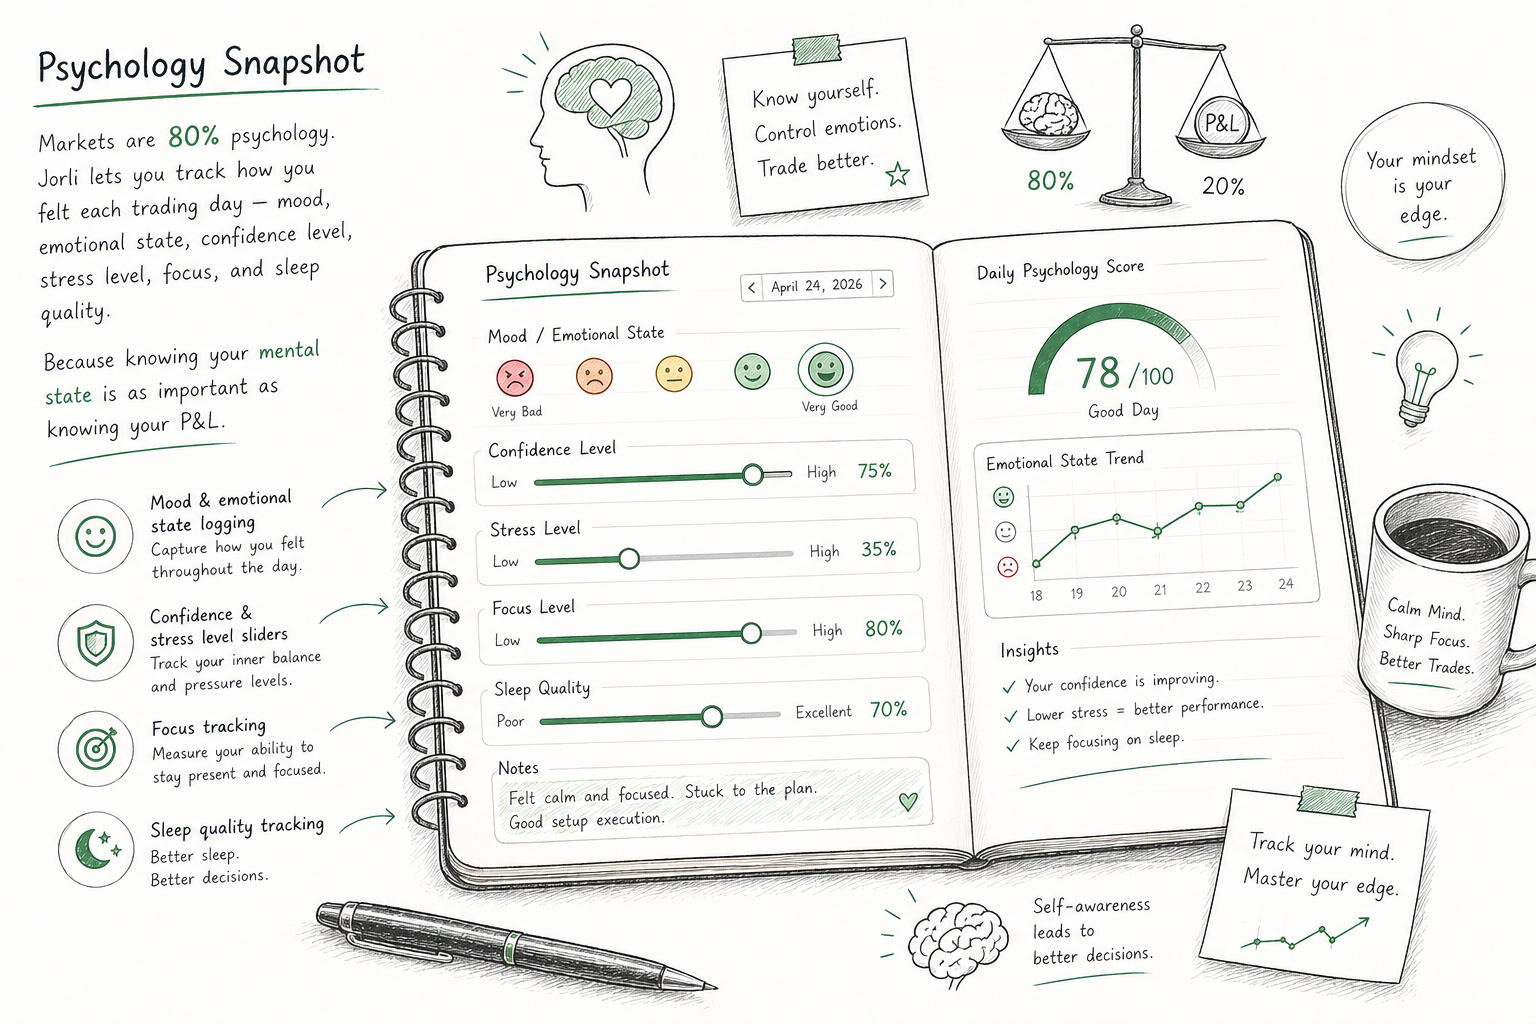 Psychology Snapshot
Markets are 80% psychology.
Jorli lets you track how you
felt each trading day — mood,
emotional state, confidence level,
stress level, focus, and sleep
quality.
Because knowing your mental
state is as important as
knowing your P&L.
Mood & emotional
state logging
Capture how you felt
throughout the day.
Confidence &
stress level sliders
Track your inner balance
and pressure levels.
Focus tracking
Measure your ability to
stay present and focused.
Sleep quality tracking
Better sleep.
Better decisions.
Know yourself.
Control emotions.
Trade better.
P&L
80%
20%
Your mindset
is your
edge.
Psychology Snapshot
< April 24, 2026 >
Mood / Emotional State
Very Bad
Very Good
Confidence Level
Low High 75%
Stress Level
Low High 35%
Focus Level
Low High 80%
Sleep Quality
Poor Excellent 70%
Notes
Felt calm and focused. Stuck to the plan.
Good setup execution.
Daily Psychology Score
78 /100
Good Day
Emotional State Trend
18 19 20 21 22 23 24
Insights
✓ Your confidence is improving.
✓ Lower stress = better performance.
✓ Keep focusing on sleep.
Calm Mind.
Sharp Focus.
Better Trades.
Self-awareness
leads to
better decisions.
Track your mind.
Master your edge.